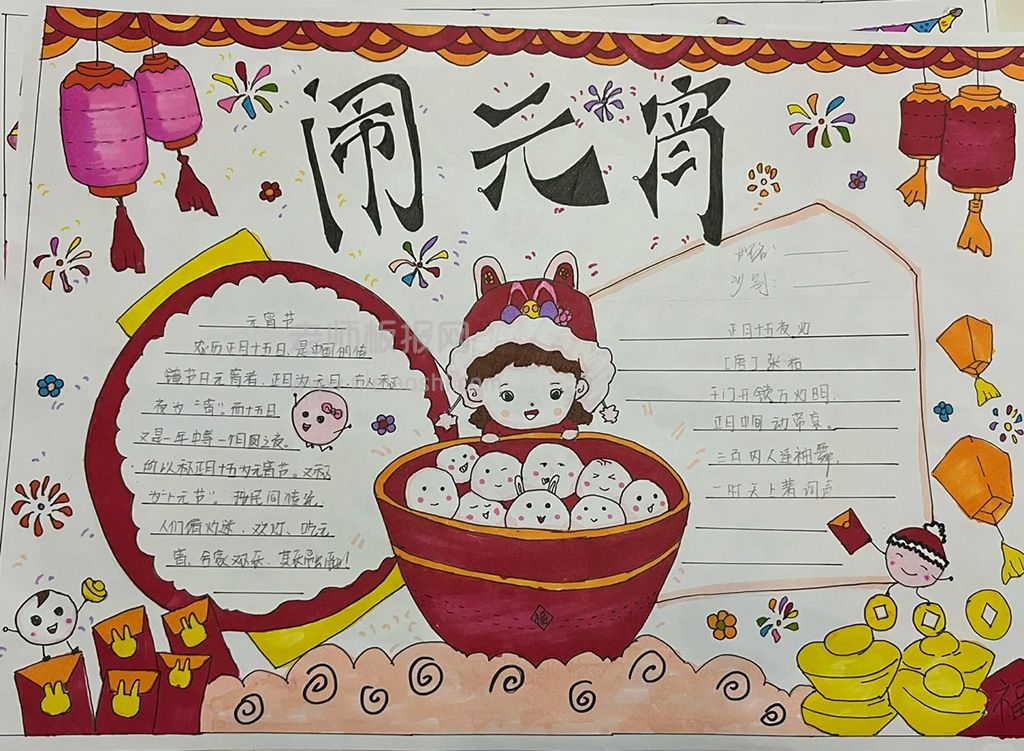 闹元宵
元宵节
农历正月十五日,是中国的传
夜为"宵"。而十五日
又是一年中第一个月圆之夜。
所以称正月十五为元宵节。又称
为"上元节"。按民间传统
人们
宵、合家欢乐、其乐融融!
姓名:
班别:
正月十五夜灯
[唐]张祜
千门开锁万灯明,
正月中旬动帝京。
三百内人连袖舞
一时天上著词声
福
福